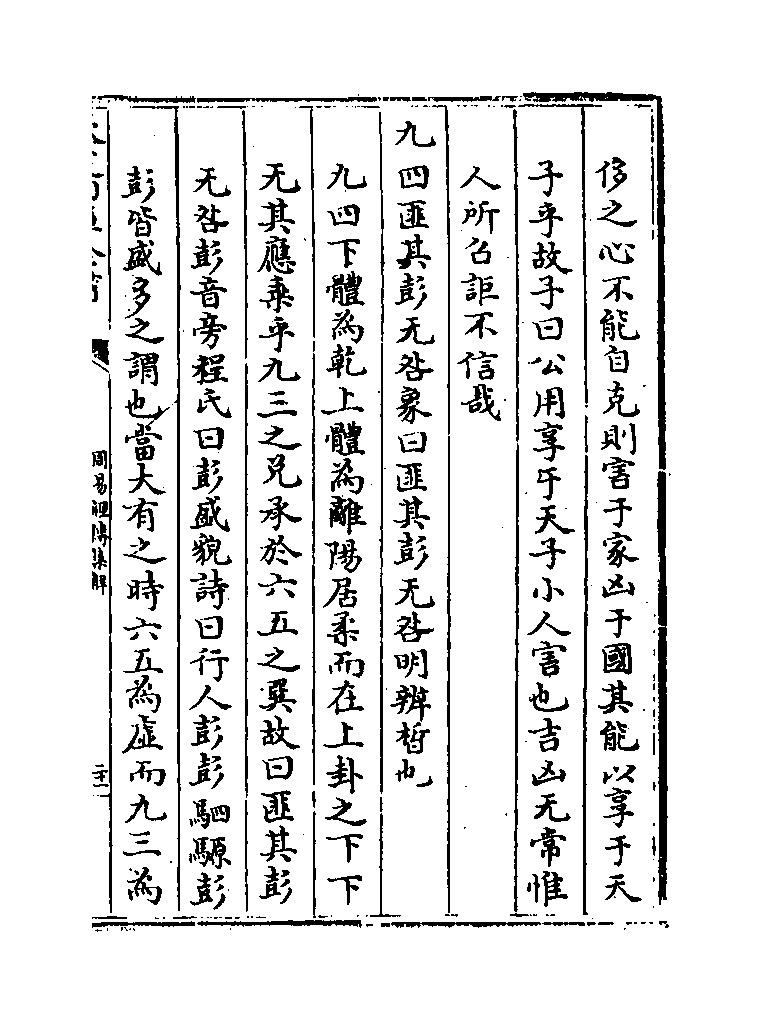 侈之心不能自克則害于家凶于國其能以享于天
子乎故子曰公用享于天子小人害也吉凶无常惟
人所召詎不信哉
九四匪其彭无咎象曰匪其彭无咎明辨晢也
九四下體為乾上體為離陽居柔而在上卦之下下
无其應乗乎九三之兌承於六五之巽故曰匪其彭
无咎彭音旁程氏曰彭盛貌詩曰行人彭彭駟騵彭
彭皆盛多之謂也當大有之時六五為虛而九三為
周易經傳集解
二十一